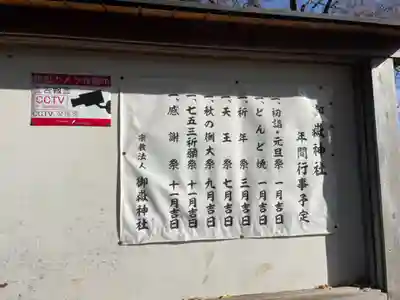 御嶽神社
年間行事予定
一、初詣・元旦祭 一月吉日
一、どんど焼 一月吉日
一、祈年祭 三月吉日
一、天王祭 七月吉日
一、秋の例大祭 九月吉日
一、七五三祈願祭 十一月吉日
一、感謝祭 十一月吉日
宗教法人 御嶽神社
CCTV
CCTV